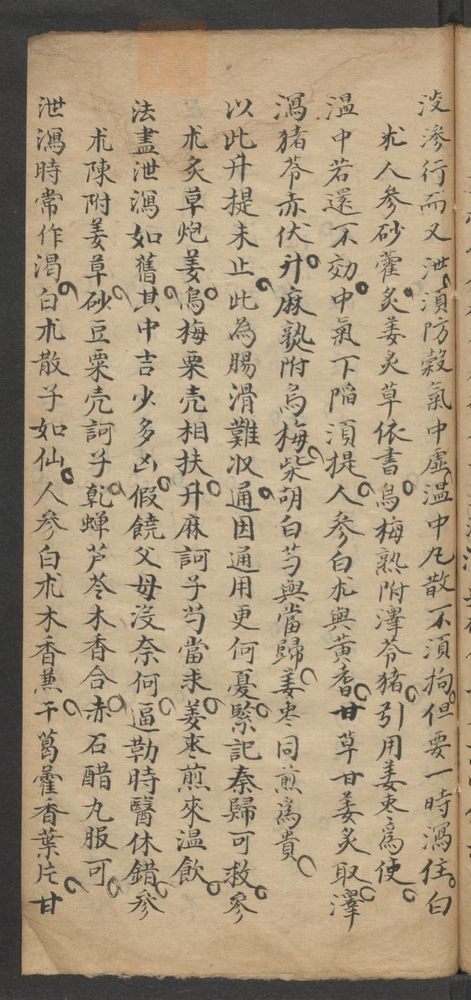 没滲行而又泄須防穀氣中虛温中凡散不須拘但要一時瀉住白
朮人參砂藿炙姜炙草依書烏梅熟附澤苓猪引用姜枣為使
温中若還不効中氣下陷須提人參白朮與黃耆甘草甘姜炙取澤
瀉猪苓赤伏升麻熟附烏梅柴胡白芍與當歸姜枣同煎為貴
以此升提未止此為腸滑難收通因通用更何憂緊記秦歸可救參
朮炙草炮姜烏梅粟壳相扶升麻訶子芍當求姜枣煎來温飲
法盡泄瀉如舊其中吉少多凶假饒父母沒奈何逼勒時醫休錯參
朮陳附姜草砂豆粟壳訶子乾蟬芦苓木香合赤石醋丸服可
泄瀉時常作渴白朮散子如仙人參白朮木香兼干葛藿香葉片甘